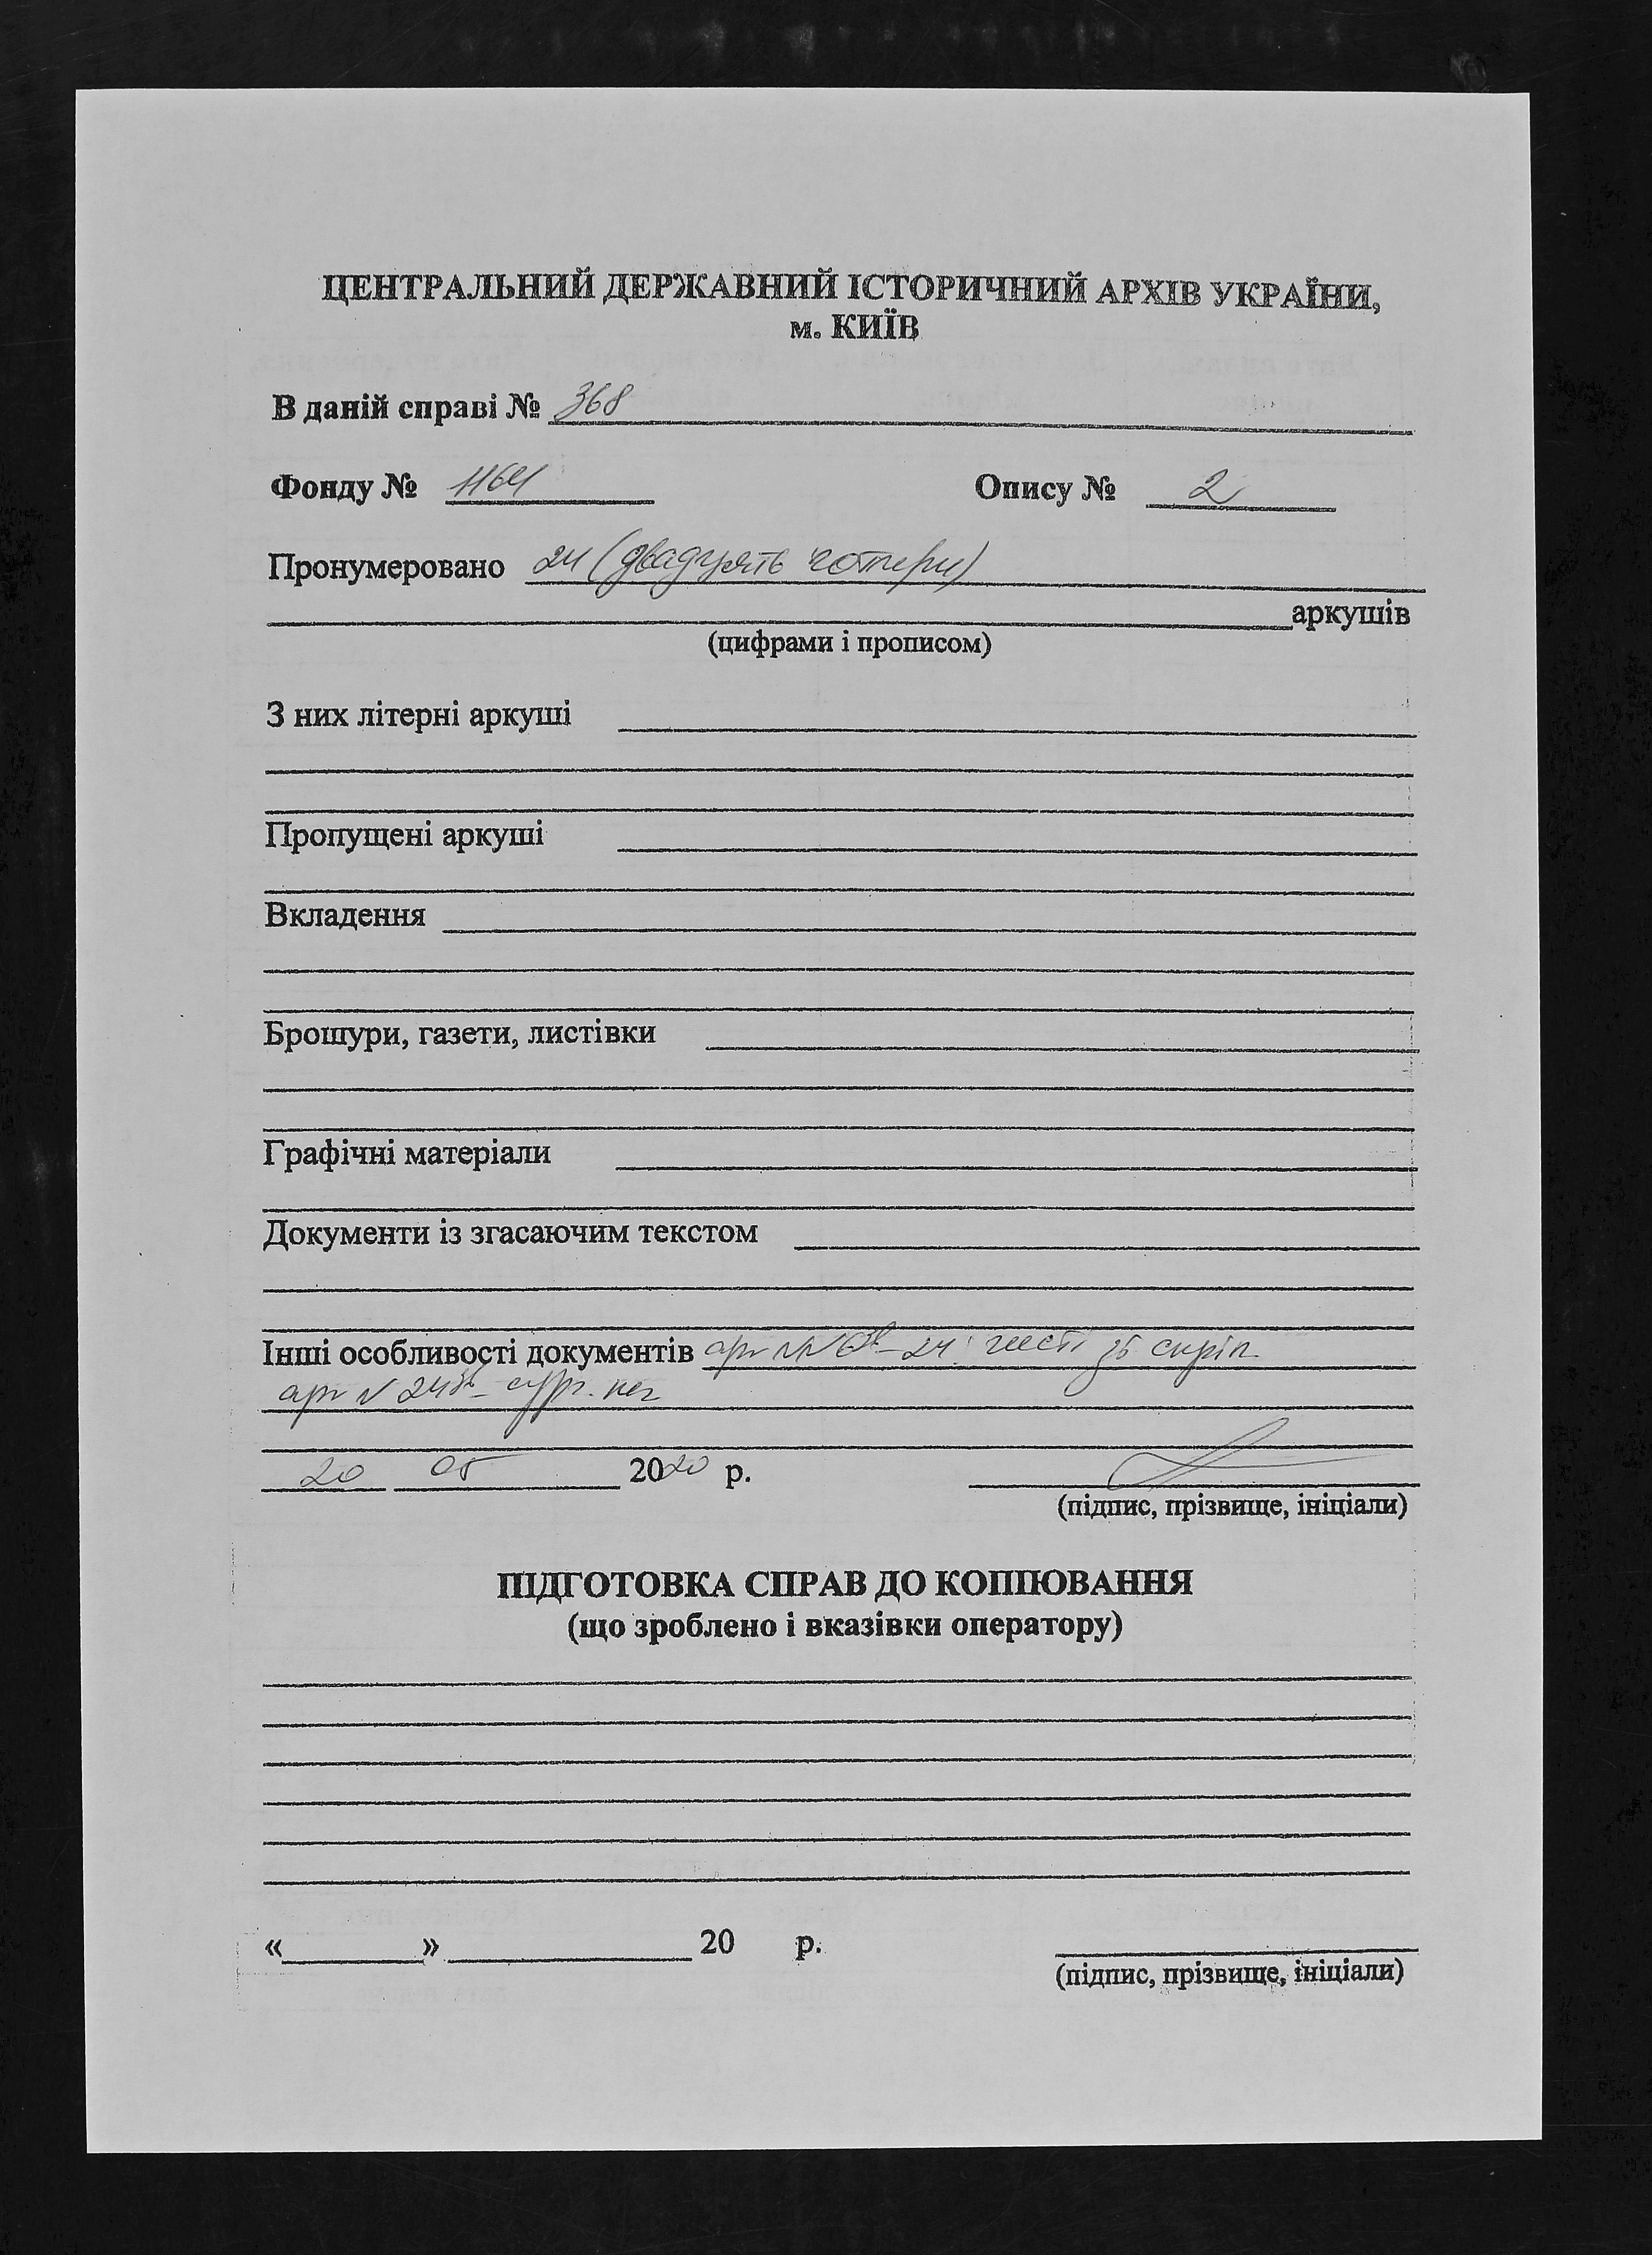 ЦЕНТРАЛЬНИЙ ДЕРЖАВНИЙ ІСТОРИЧНИЙ АРХІВ УКРАЇНИ,
м. КИЇВ
В даній справі № 368
Фонду № 1164 Опису № 2
Пронумеровано 24 (двадцять чотири)
аркушів
(цифрами і прописом)
З них літерні аркуші
Пропущені аркуші
Вкладення
Брошури, газети, листівки
Графічні матеріали
Документи із згасаючим текстом
Інші особливості документів арк
арк № 24
20 05 2020 р.
(підпис, прізвище, ініціали)
ПІДГОТОВКА СПРАВ ДО КОПІЮВАННЯ
(що зроблено і вказівки оператору)
« » 20 р.
(підпис, прізвище, ініціали)